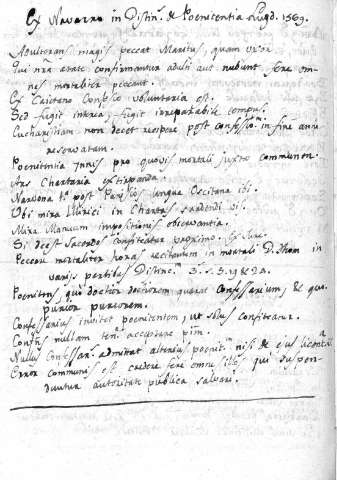 Ex Navarro in Distin. de Poenitentia Lugd. 1569.
Adulterans magis peccat Maritus, quam uxor.
Qui nrã aetate confirmantur adulti aut nubunt fere om-
nes mortaliter peccant.
Ex Caietano Confessio voluntaria est.
Sed fugit interea, fugit irreparabile tempus.
Eucharistiam non decet recipere post confessm. in fine anni
reservatam.
Poenitentia pro quovis mortali juxta communem.
Ars Chartaria extirpanda.
Narbona post Parisios lingua Occitana ibi.
Ubi mira Clerici in Chartas
Mira Manuum impositionis observantia.
Si deest Sacerdos confiteatur
Peccare mortaliter horas recitantem in mortali D. Thom. in
varijs partibus Distinc.
Poenitens, quo doctior doctiorem quaerat Confessarium, & quo
purior puriorem.
Confessarius invitet poenitentem, ut
nullam accusare
Nullus Confessar. admittat alterius poenit. nisi de ejus licentia
Error communis est credere fere omnes illos, qui suspen-
duntur autoritate publica salvari.